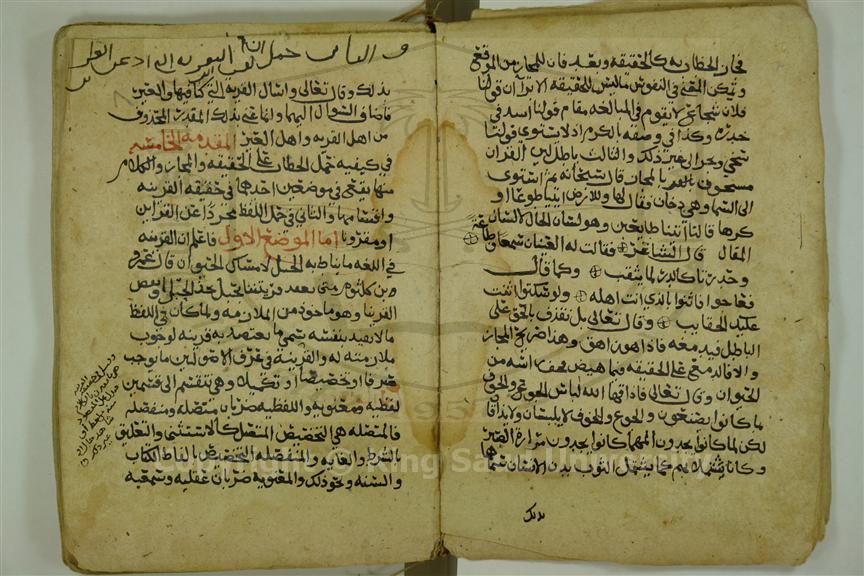 فجاز الخطاب به كالحقيقه وبعد فان للمجاز من الموقع
وتمكن المعنى في النفوس ما ليس للحقيقه الا ترى ان قولنا
فلان شجاع لا يقوم في المبالغه مقام قولنا اسد في
خدره وكذا في وصفه بالكرم اذ لا يستوي قولنا
سخي وبحر الى غير ذلك والثالث باطل لان القران
مشحون بالمجاز قال سبحانه ثم استوى
الى السما وهي دخان فقال لها وللارض ائتيا طوعا او
كرها قالتا اتينا طايعين وهو لسان الحال لا لسان
المقال قال الشاعر فقالت له العينان سمعا وطاعة
وحدرتا كالدر لما يثقب وكما قال
فعاجوا فاثنوا بالذي انت اهله ولو سكتوا اثنت
عليك الحقايب وقال تعالى بل نقذف بالحق على
الباطل فيدمغه فاذا هو زاهق وهذا صريح المجاز
والا فالدمغ على الحقيقه وما هيض مخه راسه من
الحيوان وقال تعالى فاذاقها الله لباس الجوع والخوف
بما كانوا يصنعون والجوع والخوف لا يلبسان ولا يذاقان
لكن لما كانوا يجدون المهما كانوا يجدون مرارة الصبر
وكانا يشملانهم كما يشمل الثوب بدن الانسان سماها
بذلك
بذلك وقال تعالى واسال القريه التي كنا فيها والعير
فاضاف السوال اليهما وانما عنى بذلك المقدر المحذوف
من اهل القريه واهل العير المقدمه الخامسه
في كيفيه حمل الخطاب على الحقيقه والمجاز والكلام
منها يقع في موضعين احدهما في حقيقه القرينه
واقسامها والثاني في حمل اللفظ مجردا عن القراين
او مقرونا اما الموضع الاول فاعلم ان القرينه
في اللغه ما يناط به الحبل لامساك الحيوان قال عمرو
بن كلثوم متى نعقد قرينتنا بحبل نجد الحبل او نقص
القرينا وهو ماخوذ من الملازمه ولما كان في اللفظ
ما لا يفيد بنفسه سمي ما يعتضد به قرينه لوجوب
ملازمته له والقرينة في عرف الاصوليين ما يوجب
صرفا او تخصيصا او تكمله وهي تنقسم الى قسمين
لفظيه ومعنويه واللفظيه ضربان متصله ومنفصله
فالمتصله هي التخصيص المتصل كالاستثنى والتعليق
بالشرط والغايه والمنفصله التخصيص بالفاظ الكتاب
والسنه ونحو ذلك والمعنويه ضربان عقليه وسمعيه
Copyright © King Saud University
1957